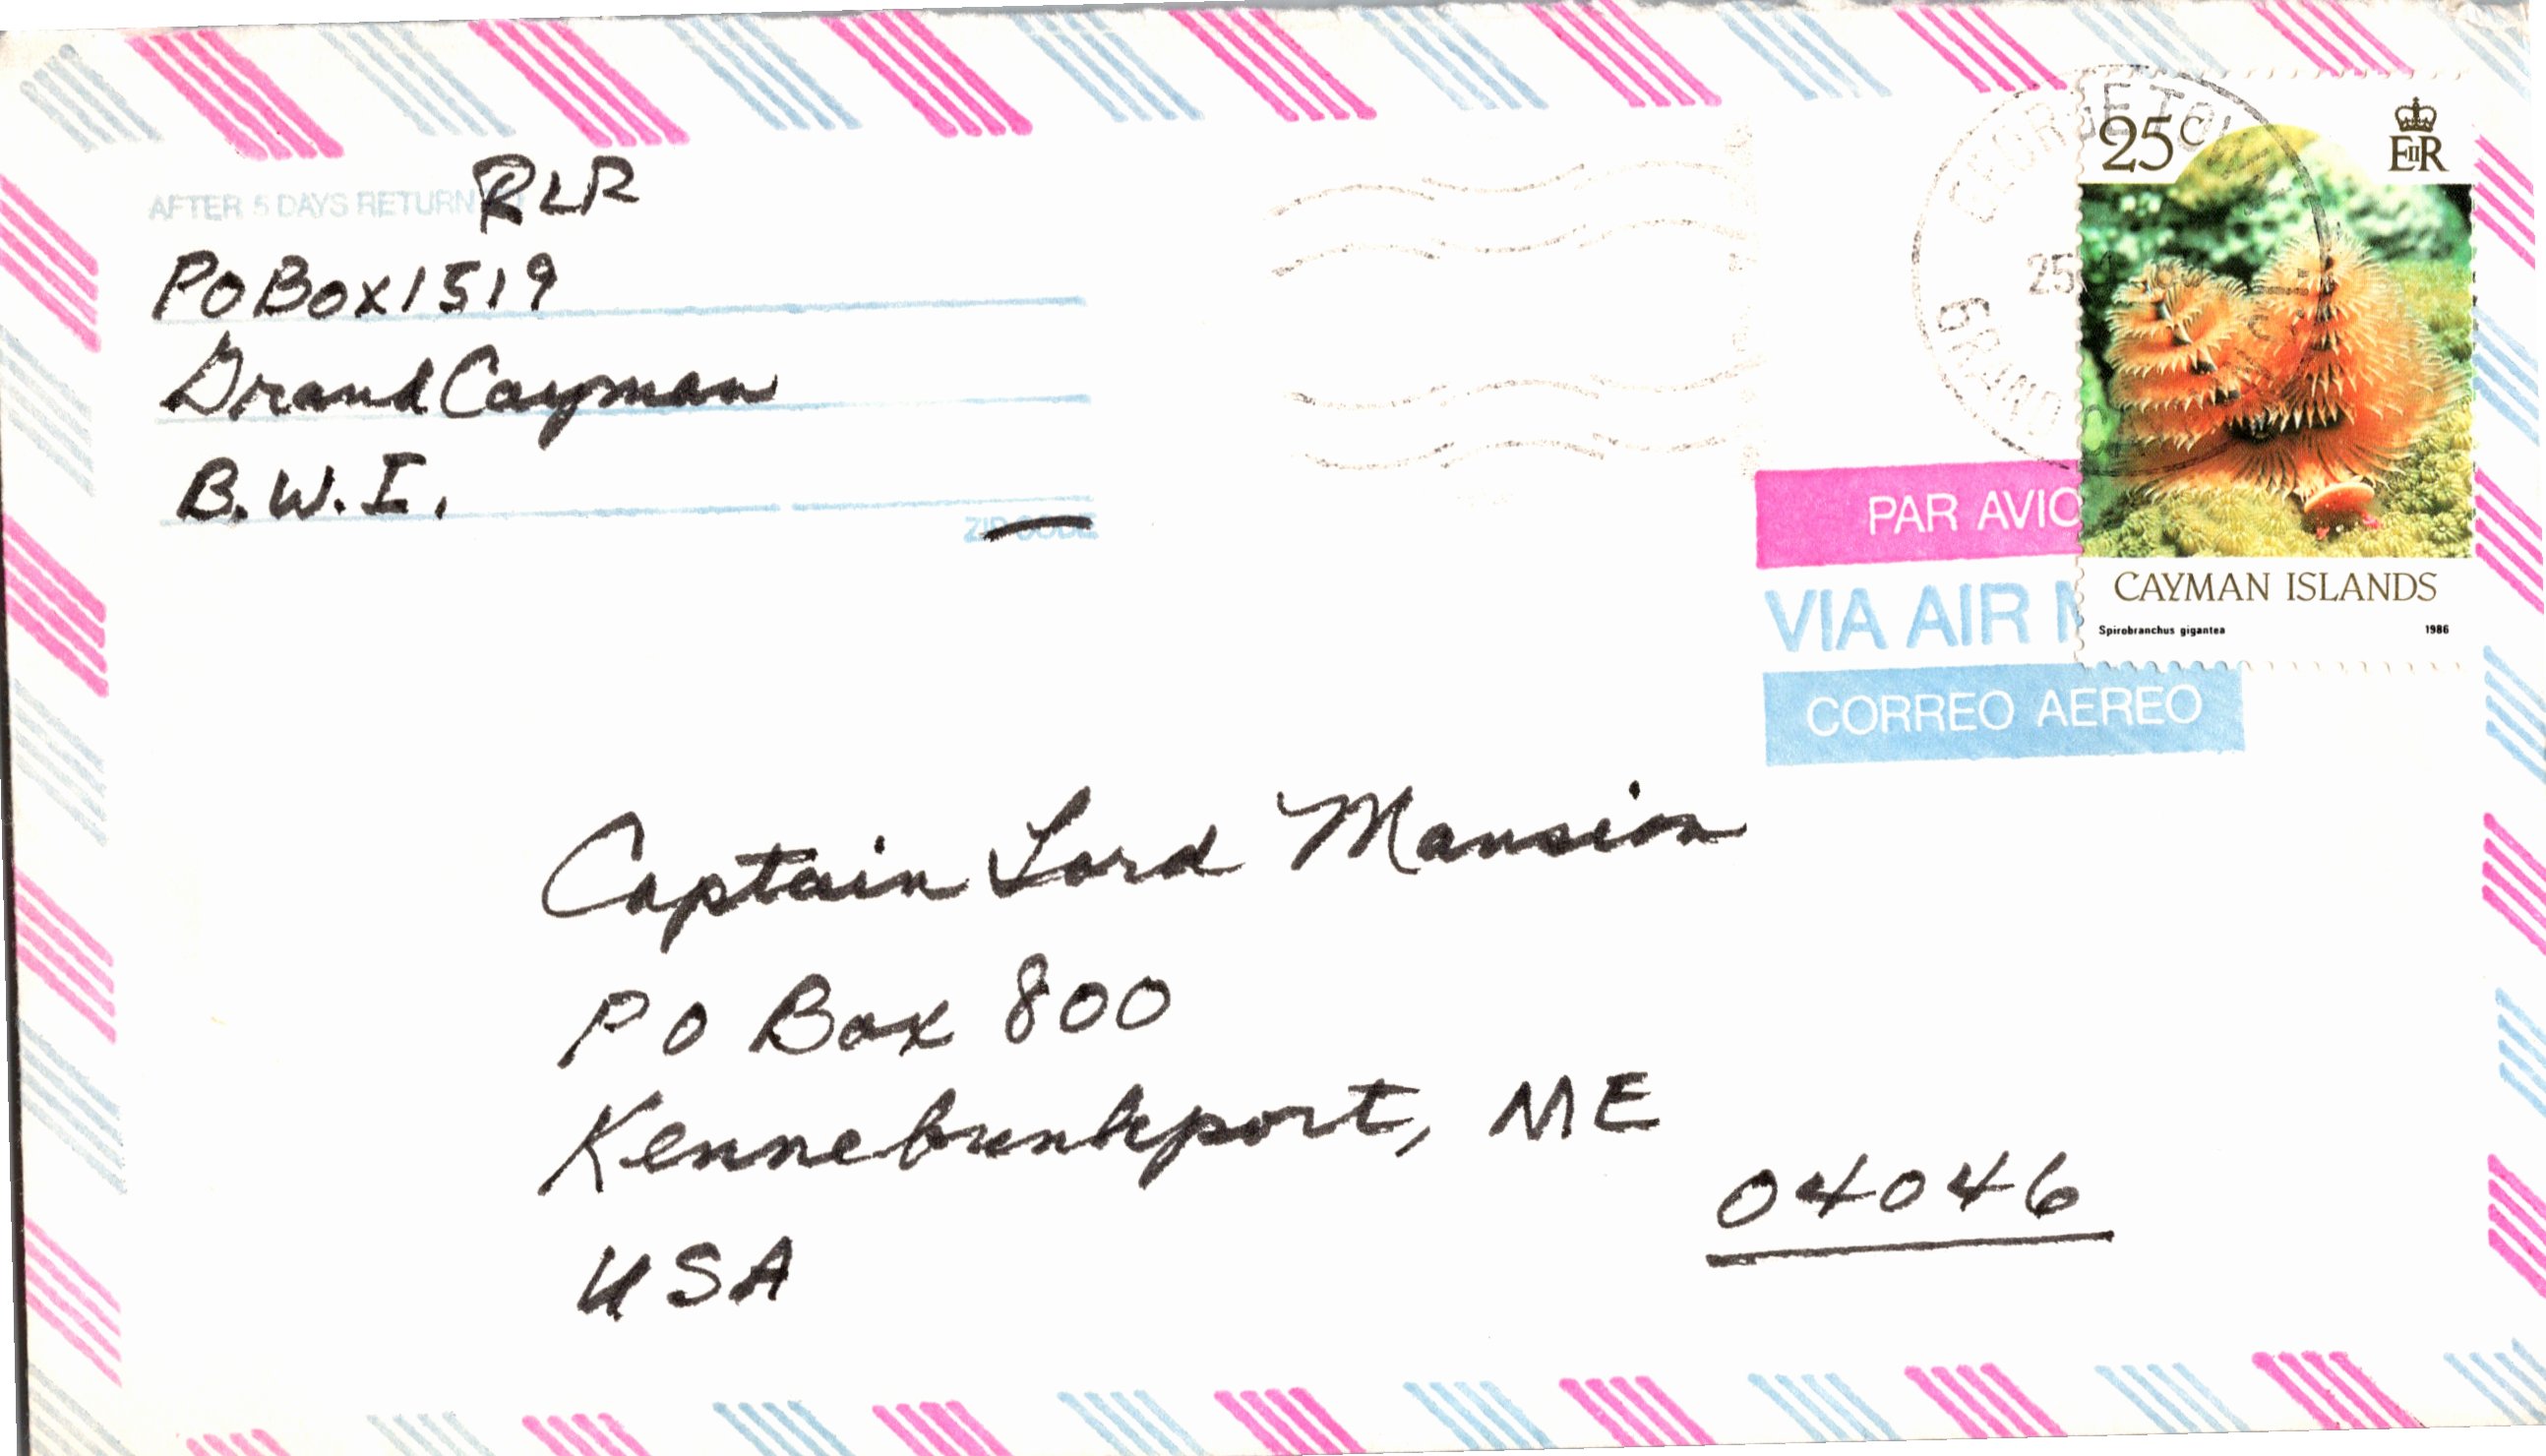 AFTER 5 DAYS RETURN
RLR
PO Box 1519
Grand Cayman
B.W.I.
ZIP CODE
GEORGE TOWN
25
GRAND
25c
EIIR
CAYMAN ISLANDS
Spirobranchus gigantea 1986
PAR AVIO
VIA AIR M
CORREO AEREO
Captain Lord Mansion
PO Box 800
Kennebunkport, ME
04046
USA